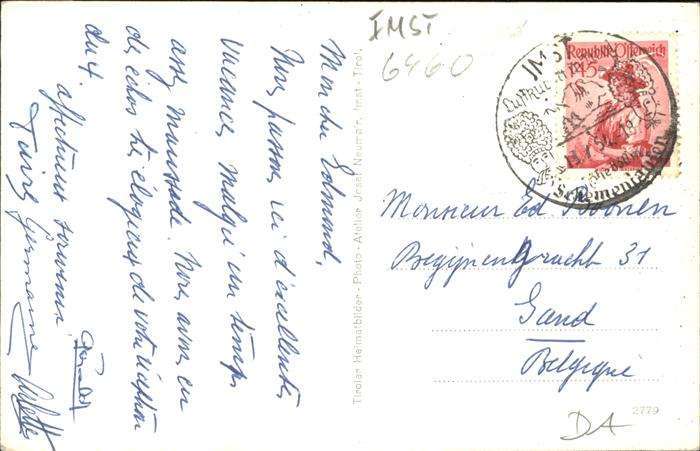 Mon cher Edmond,
Nous passons ici d'excellentes
vacances, malgré un temps
assez maussade. Nous avons eu
des échos très élogieux de votre réception
du 4.
affectueux souvenir
Germaine
Tiroler Heimatbilder - Photo - Atelier Josef Neumair, Imst - Tirol.
IMST
6460
IMST
Republik Österreich
1.45
Schemenlaufen
Monsieur Ed Boonen
Begijnengracht 31
Gand
Belgique
2779
DA